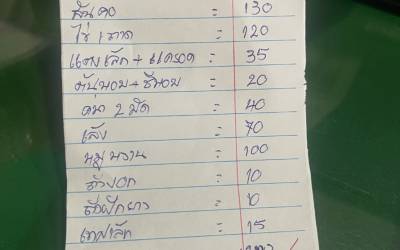 สันคอ = 130
ไข่ 1 ถาด = 120
แตงเล็ก + แครอด = 35
ต้นหอม + ชีหอม = 20
คน้า 2 มัด = 40
เส้ง = 70
หมูหวาน = 100
ถั่วงอก = 10
ถั่วฝักยาว = 10
= 15